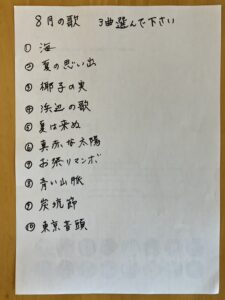 8月の歌 3曲選んで下さい
① 海
② 夏の思い出
③ 椰子の実
④ 浜辺の歌
⑤ 夏は来ぬ
⑥ 真赤な太陽
⑦ お祭りマンボ
⑧ 青い山脈
⑨ 炭坑節
⑩ 東京音頭